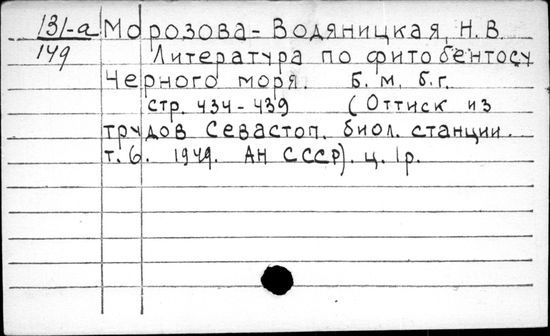 131-а Морозова-Водяницкая, Н.В.
149 Литература по фитобентосу
Черного моря. б.м. б.г.
стр. 434-439 (Оттиск из
трудов Севастоп. биол. станции.
т.6. 1949. АН СССР). ц. 1р.